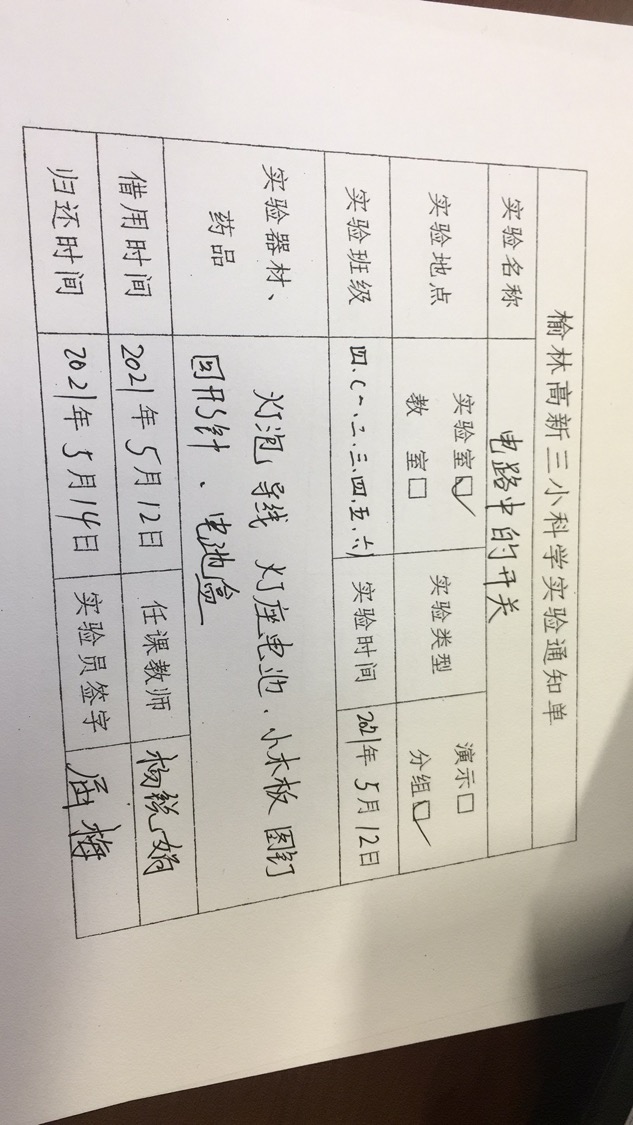 榆林高新三小科学实验通知单
实验名称 电路中的开关
实验地点 实验室☑ 教室□ 实验类型 演示□ 分组☑
实验班级 四.(一、二、三、四、五、六) 实验时间 2021年5月12日
实验器材、药品 灯泡 导线 灯座 电池、小木板 图钉
回形针、电池盒
借用时间 2021年5月12日 任课教师 杨锐娟
归还时间 2021年5月14日 实验员签字 屈梅